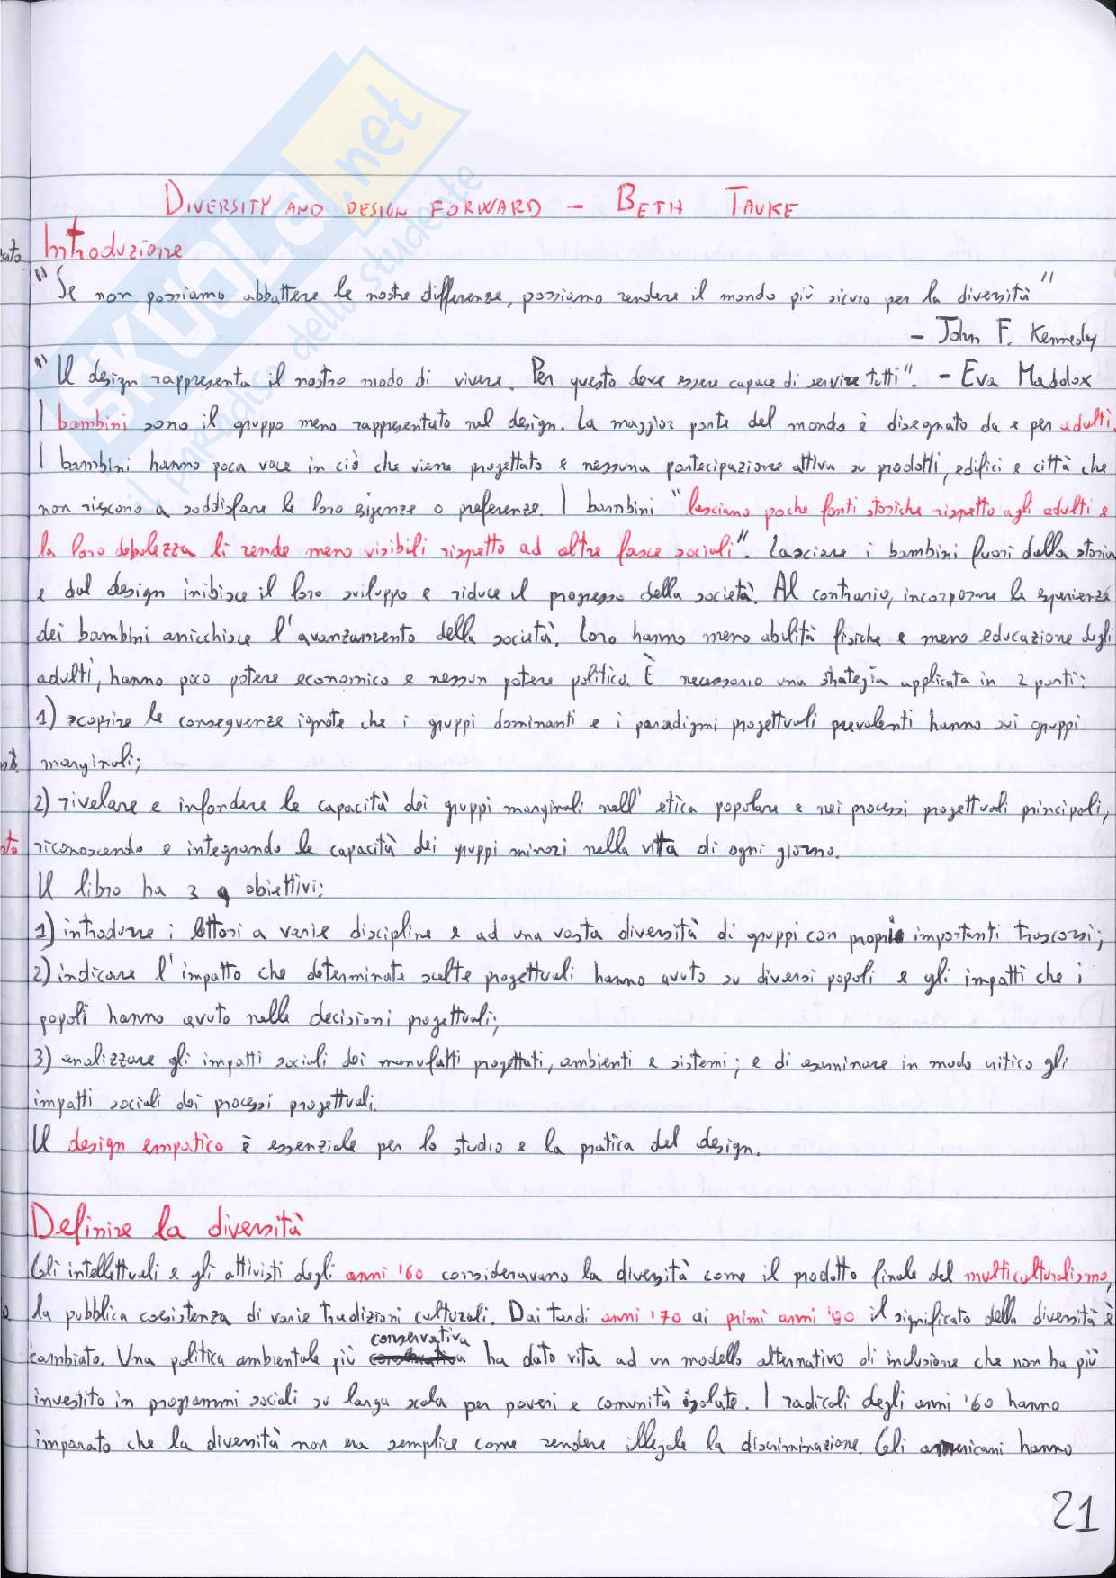 DIVERSITY AND DESIGN FORWARD – BETH TAUKE
Introduzione
"Se non possiamo abbattere le nostre differenze, possiamo rendere il mondo più sicuro per la diversità"
– John F. Kennedy
"Il design rappresenta il nostro modo di vivere. Per questo deve essere capace di servire tutti". – Eva Maddox
I bambini sono il gruppo meno rappresentato nel design. La maggior parte del mondo è disegnato da e per adulti.
I bambini hanno poca voce in ciò che viene progettato e nessuna partecipazione attiva su prodotti, edifici e città che
non riescono a soddisfare le loro esigenze o preferenze. I bambini "lasciano poche fonti storiche rispetto agli adulti e
la loro debolezza li rende meno visibili rispetto ad altre fasce sociali". Lasciare i bambini fuori dalla storia
e dal design inibisce il loro sviluppo e riduce il progresso della società. Al contrario, incorporare la esperienza
dei bambini arricchisce l'avanzamento della società. Loro hanno meno abilità fisiche e meno educazione degli
adulti, hanno poco potere economico e nessun potere politico. È necessario una strategia applicata in 2 punti:
1) scoprire le conseguenze ignote che i gruppi dominanti e i paradigmi progettuali prevalenti hanno sui gruppi
marginali;
2) rivelare e infondere le capacità dei gruppi marginali nell'etica popolare e nei processi progettuali principali,
riconoscendo e integrando le capacità dei gruppi minori nella vita di ogni giorno.
Il libro ha 3 obiettivi:
1) introdurre i lettori a varie discipline e ad una vasta diversità di gruppi con propri importanti trascorsi;
2) indicare l'impatto che determinate scelte progettuali hanno avuto su diversi popoli e gli impatti che i
popoli hanno avuto nelle decisioni progettuali;
3) analizzare gli impatti sociali dei manufatti progettati, ambienti e sistemi; e di esaminare in modo critico gli
impatti sociali dei processi progettuali.
Il design empatico è essenziale per lo studio e la pratica del design.
Definire la diversità
Gli intellettuali e gli attivisti degli anni '60 consideravano la diversità come il prodotto finale del multiculturalismo,
la pubblica coesistenza di varie tradizioni culturali. Dai tardi anni '70 ai primi anni '90 il significato della diversità è
cambiato. Una politica ambientale più conservativa ha dato vita ad un modello alternativo di inclusione che non ha più
investito in programmi sociali su larga scala per poveri e comunità isolate. I radicali degli anni '60 hanno
imparato che la diversità non era semplice come rendere illegale la discriminazione. Gli americani hanno
21
SKUOLA.net
il paradiso dello studente